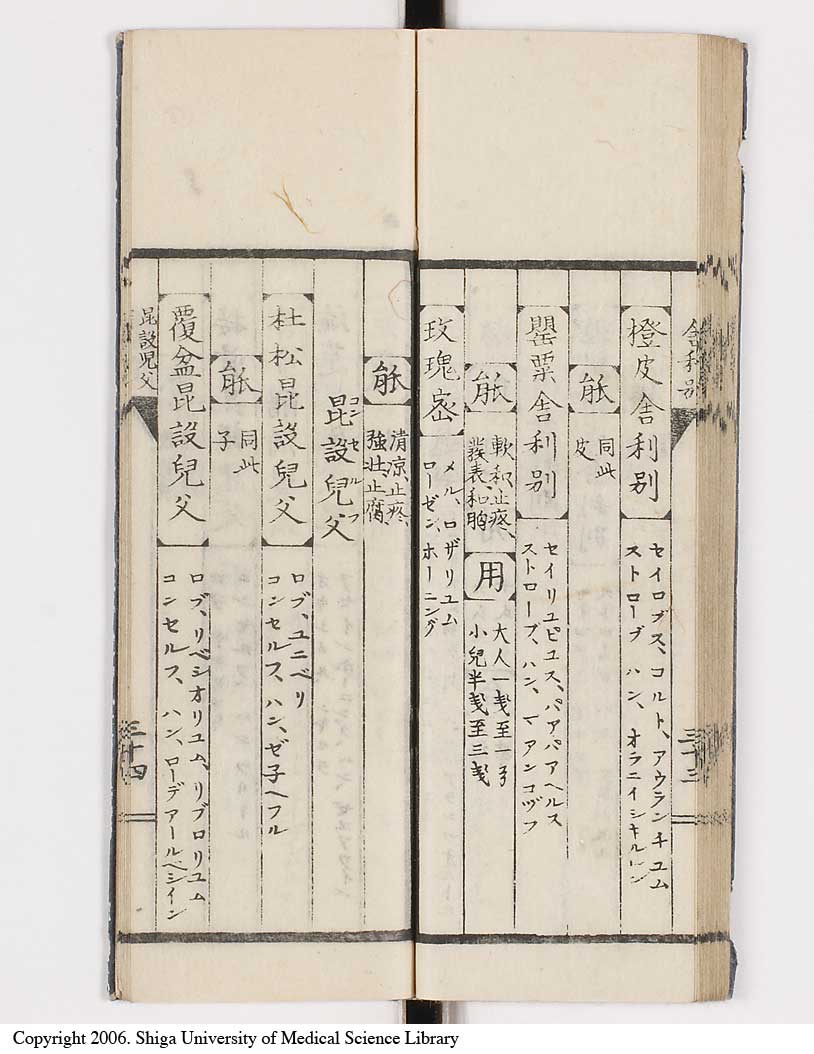 舎利別
三十三
橙皮舎利別
セイロブス、コルト、アウランチユム
ストローブ ハン、オラニイシキルレン
能
同此
皮
罌粟舎利別
セイリユピユス、パアパアヘルス
ストローブ、ハン、マアンコツプ
能
軟和、止疼、
發表、和胸
用
大人一戔至一弓
小兒半戔至三戔
玫瑰蜜
メル、ロザリユム
ローゼン、ホーニング
能
清凉、止疼、
強壮、止腐、
昆設兒父
コンセルフ
杜松昆設兒父
ロブ、ユニベリ
コンセルフ、ハン、ゼ子ヘフル
能
同此
子
覆盆昆設兒父
ロブ、リベシオリユム、リブロリユム
コンセルフ、ハン、ローデアールベシイン
昆設兒父
三十四
Copyright 2006. Shiga University of Medical Science Library